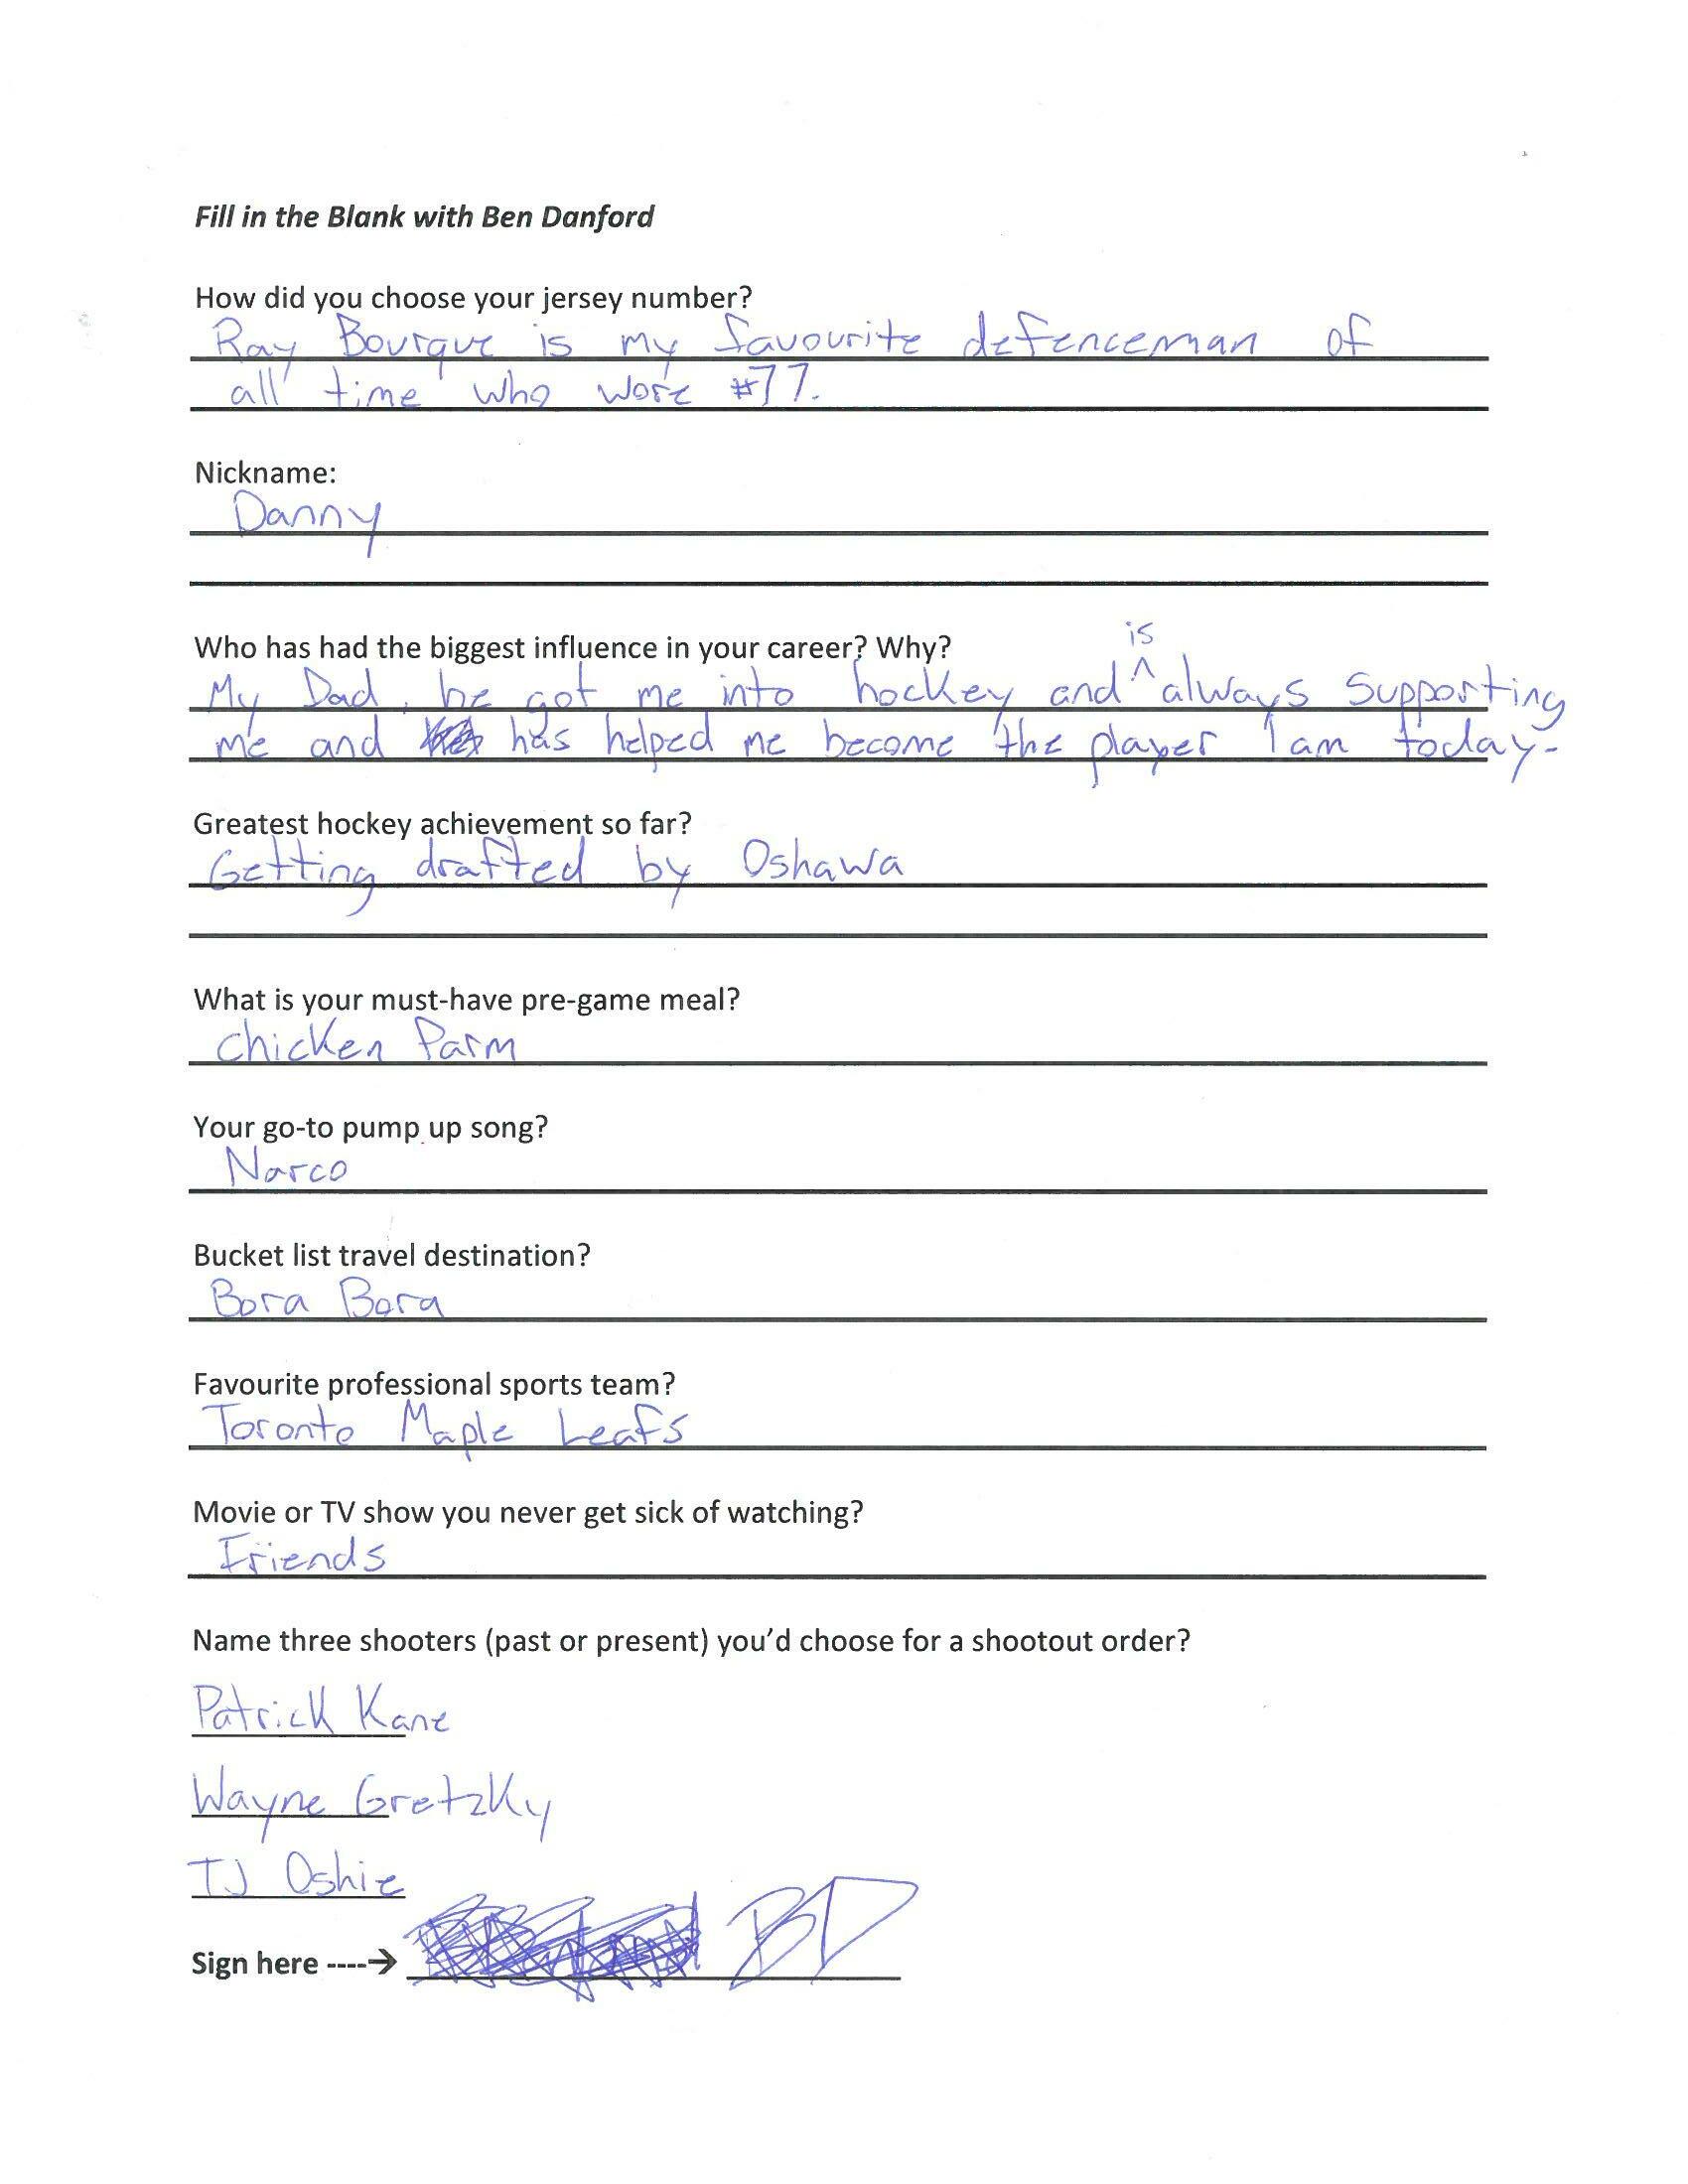 Fill in the Blank with Ben Danford
How did you choose your jersey number?
Ray Bourque is my favourite defenceman of
all time who wore #77.
Nickname:
Danny
Who has had the biggest influence in your career? Why?
My Dad, he got me into hockey and is always supporting
me and has helped me become the player I am today.
Greatest hockey achievement so far?
Getting drafted by Oshawa
What is your must-have pre-game meal?
Chicken Parm
Your go-to pump up song?
Narco
Bucket list travel destination?
Bora Bora
Favourite professional sports team?
Toronto Maple Leafs
Movie or TV show you never get sick of watching?
Friends
Name three shooters (past or present) you'd choose for a shootout order?
Patrick Kane
Wayne Gretzky
TJ Oshie
Sign here ----→ BD